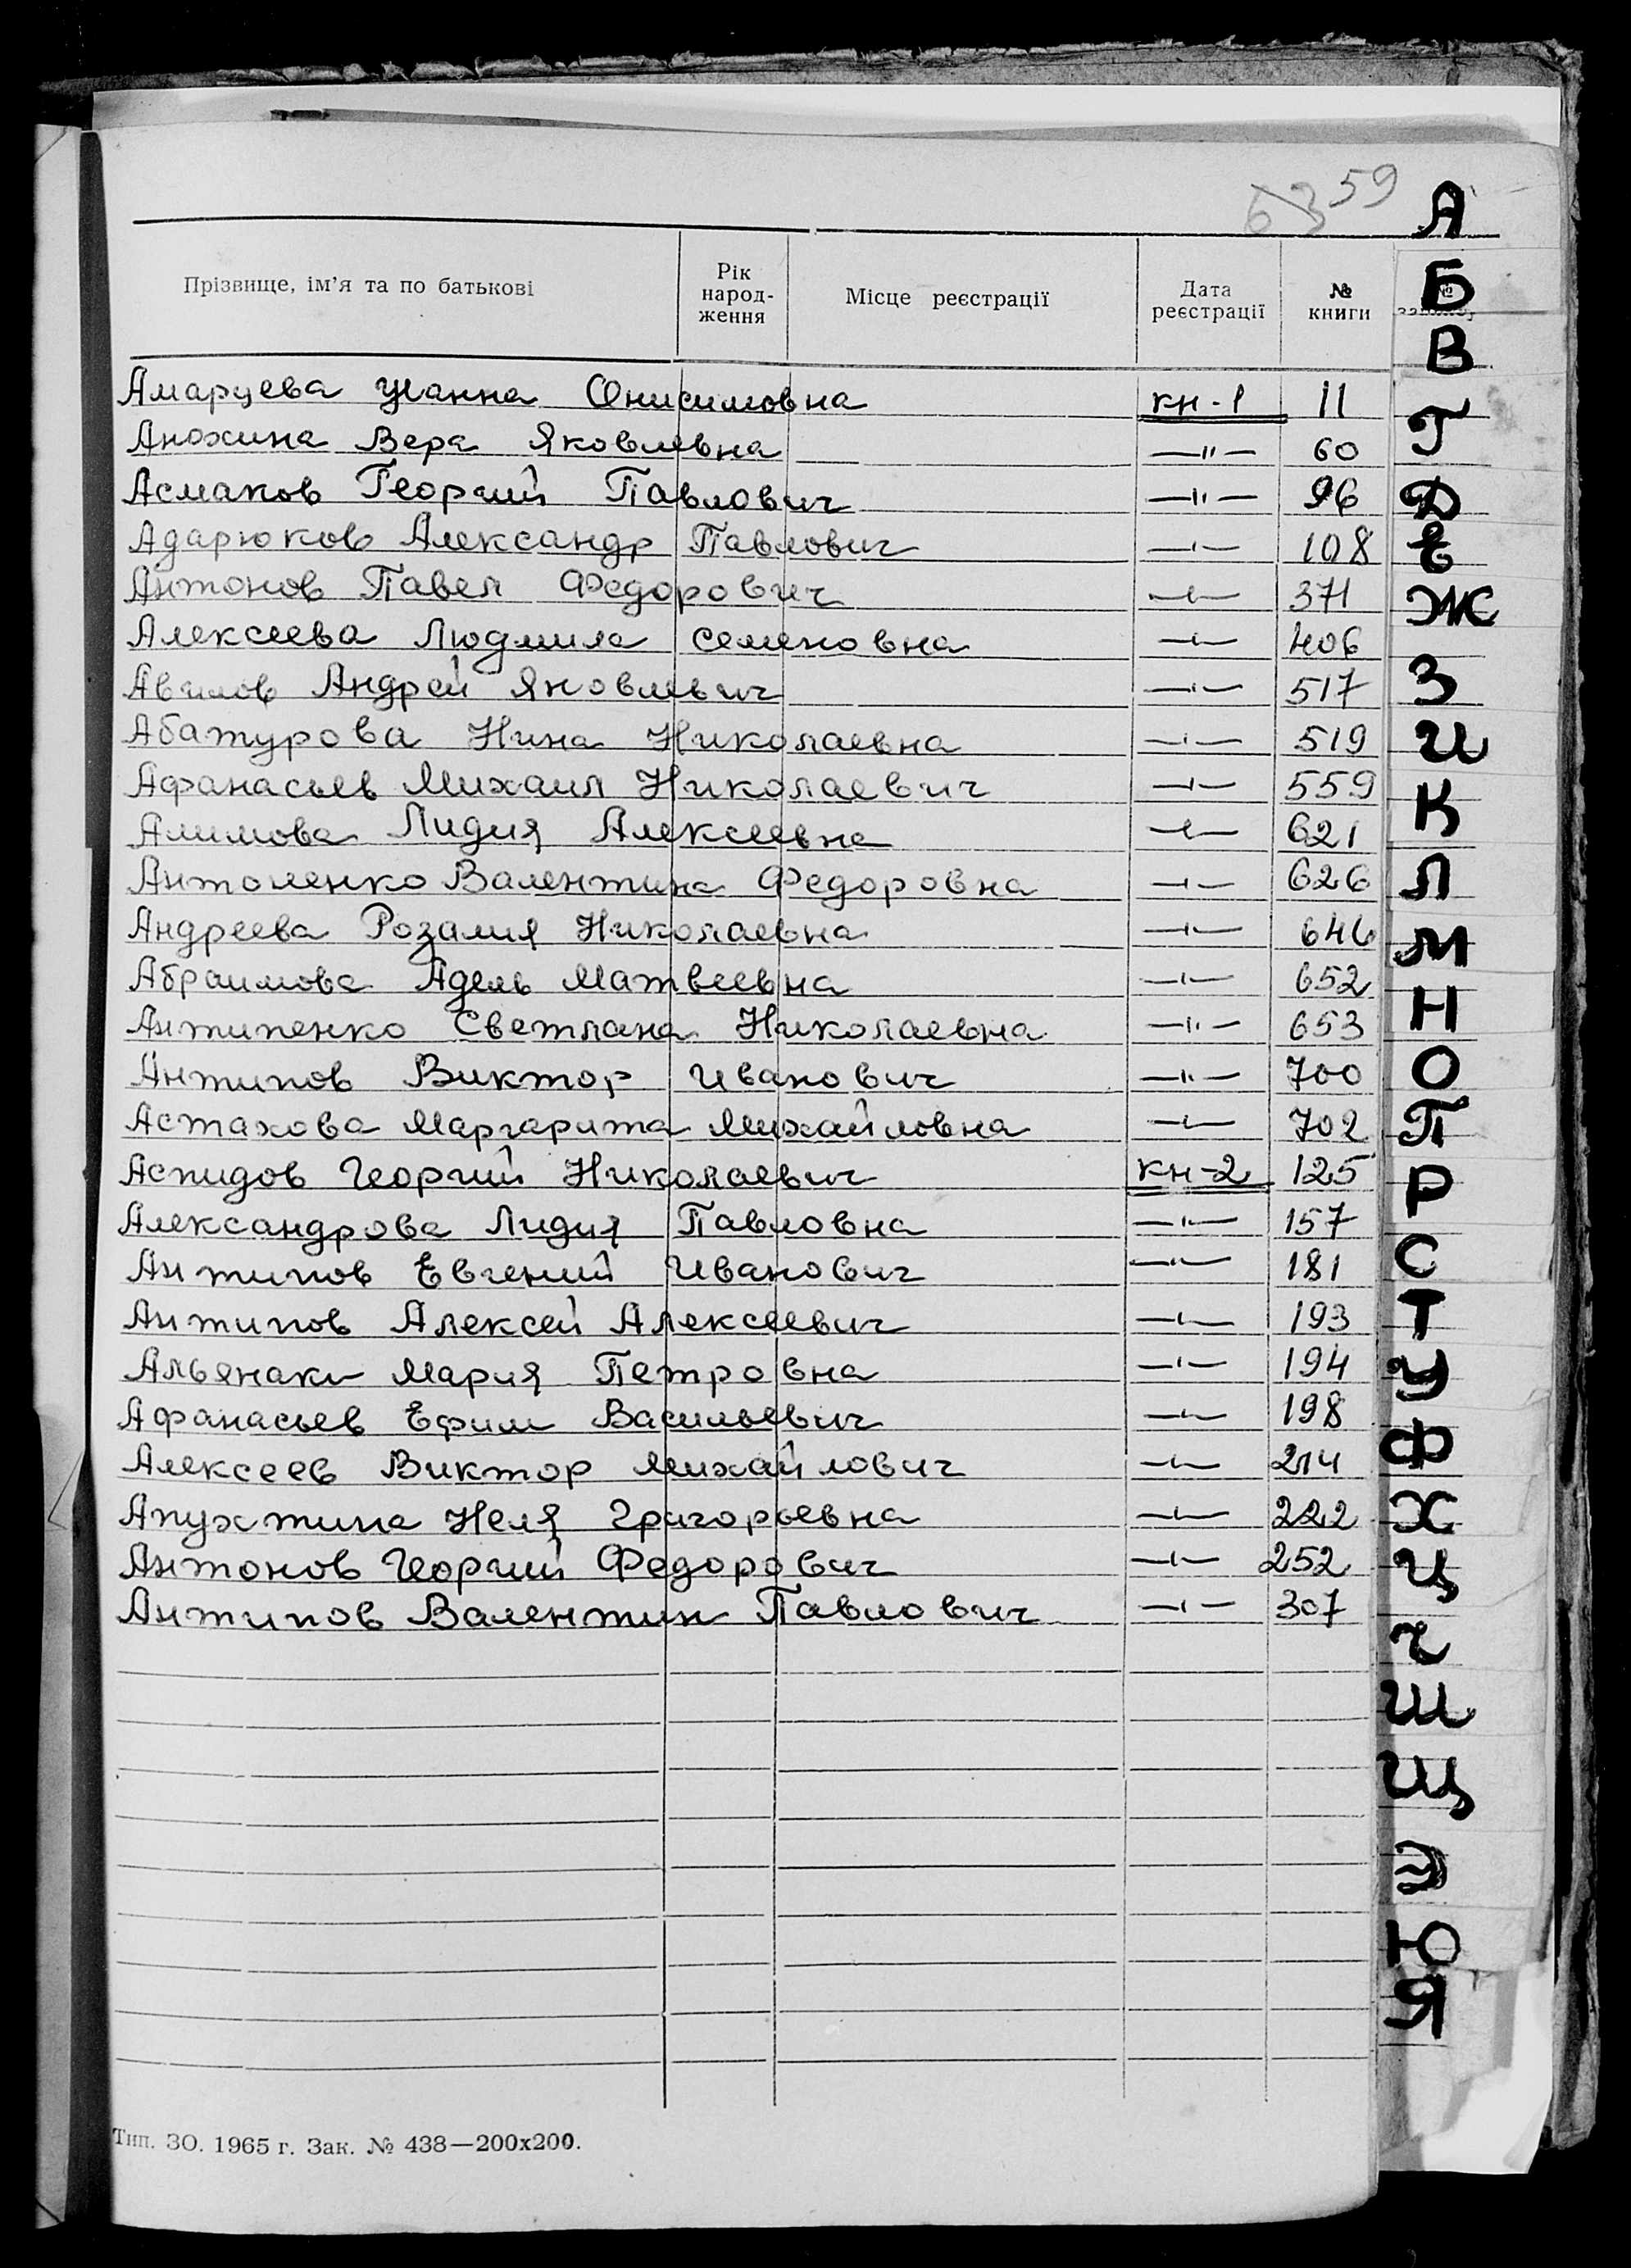 63 59
Прізвище, ім'я та по батькові Рік народ- ження Місце реєстрації Дата реєстрації № книги №
Амарцева Жанна Онисимовна кн-1 11
Анохина Вера Яковлевна —"— 60
Асмаков Георгий Павлович —"— 96
Адарюков Александр Павлович —"— 108
Антонов Павел Федорович —"— 371
Алексеева Людмила Семеновна —"— 406
Авилов Андрей Яковлевич —"— 517
Абатурова Нина Николаевна —"— 519
Афанасьев Михаил Николаевич —"— 559
Алимова Лидия Алексеевна —"— 621
Антоленко Валентина Федоровна —"— 626
Андреева Розалия Николаевна —"— 646
Абраимова Адель Матвеевна —"— 652
Антипенко Светлана Николаевна —"— 653
Антипов Виктор Иванович —"— 700
Астахова Маргарита Михайловна —"— 702
Аспидов Георгий Николаевич кн-2 125
Александрова Лидия Павловна —"— 157
Антипов Евгений Иванович —"— 181
Антипов Алексей Алексеевич —"— 193
Альянаки Мария Петровна —"— 194
Афанасьев Ефим Васильевич —"— 198
Алексеев Виктор Михайлович —"— 214
Апухтина Неля Григорьевна —"— 222
Антонов Георгий Федорович —"— 252
Антипов Валентин Павлович —"— 307
Тип. ЗО. 1965 г. Зак. № 438—200х200.
А
Б
В
Г
Д
Е
Ж
З
И
К
Л
М
Н
О
П
Р
С
Т
У
Ф
Х
Ц
Ч
Ш
Щ
Э
Ю
Я